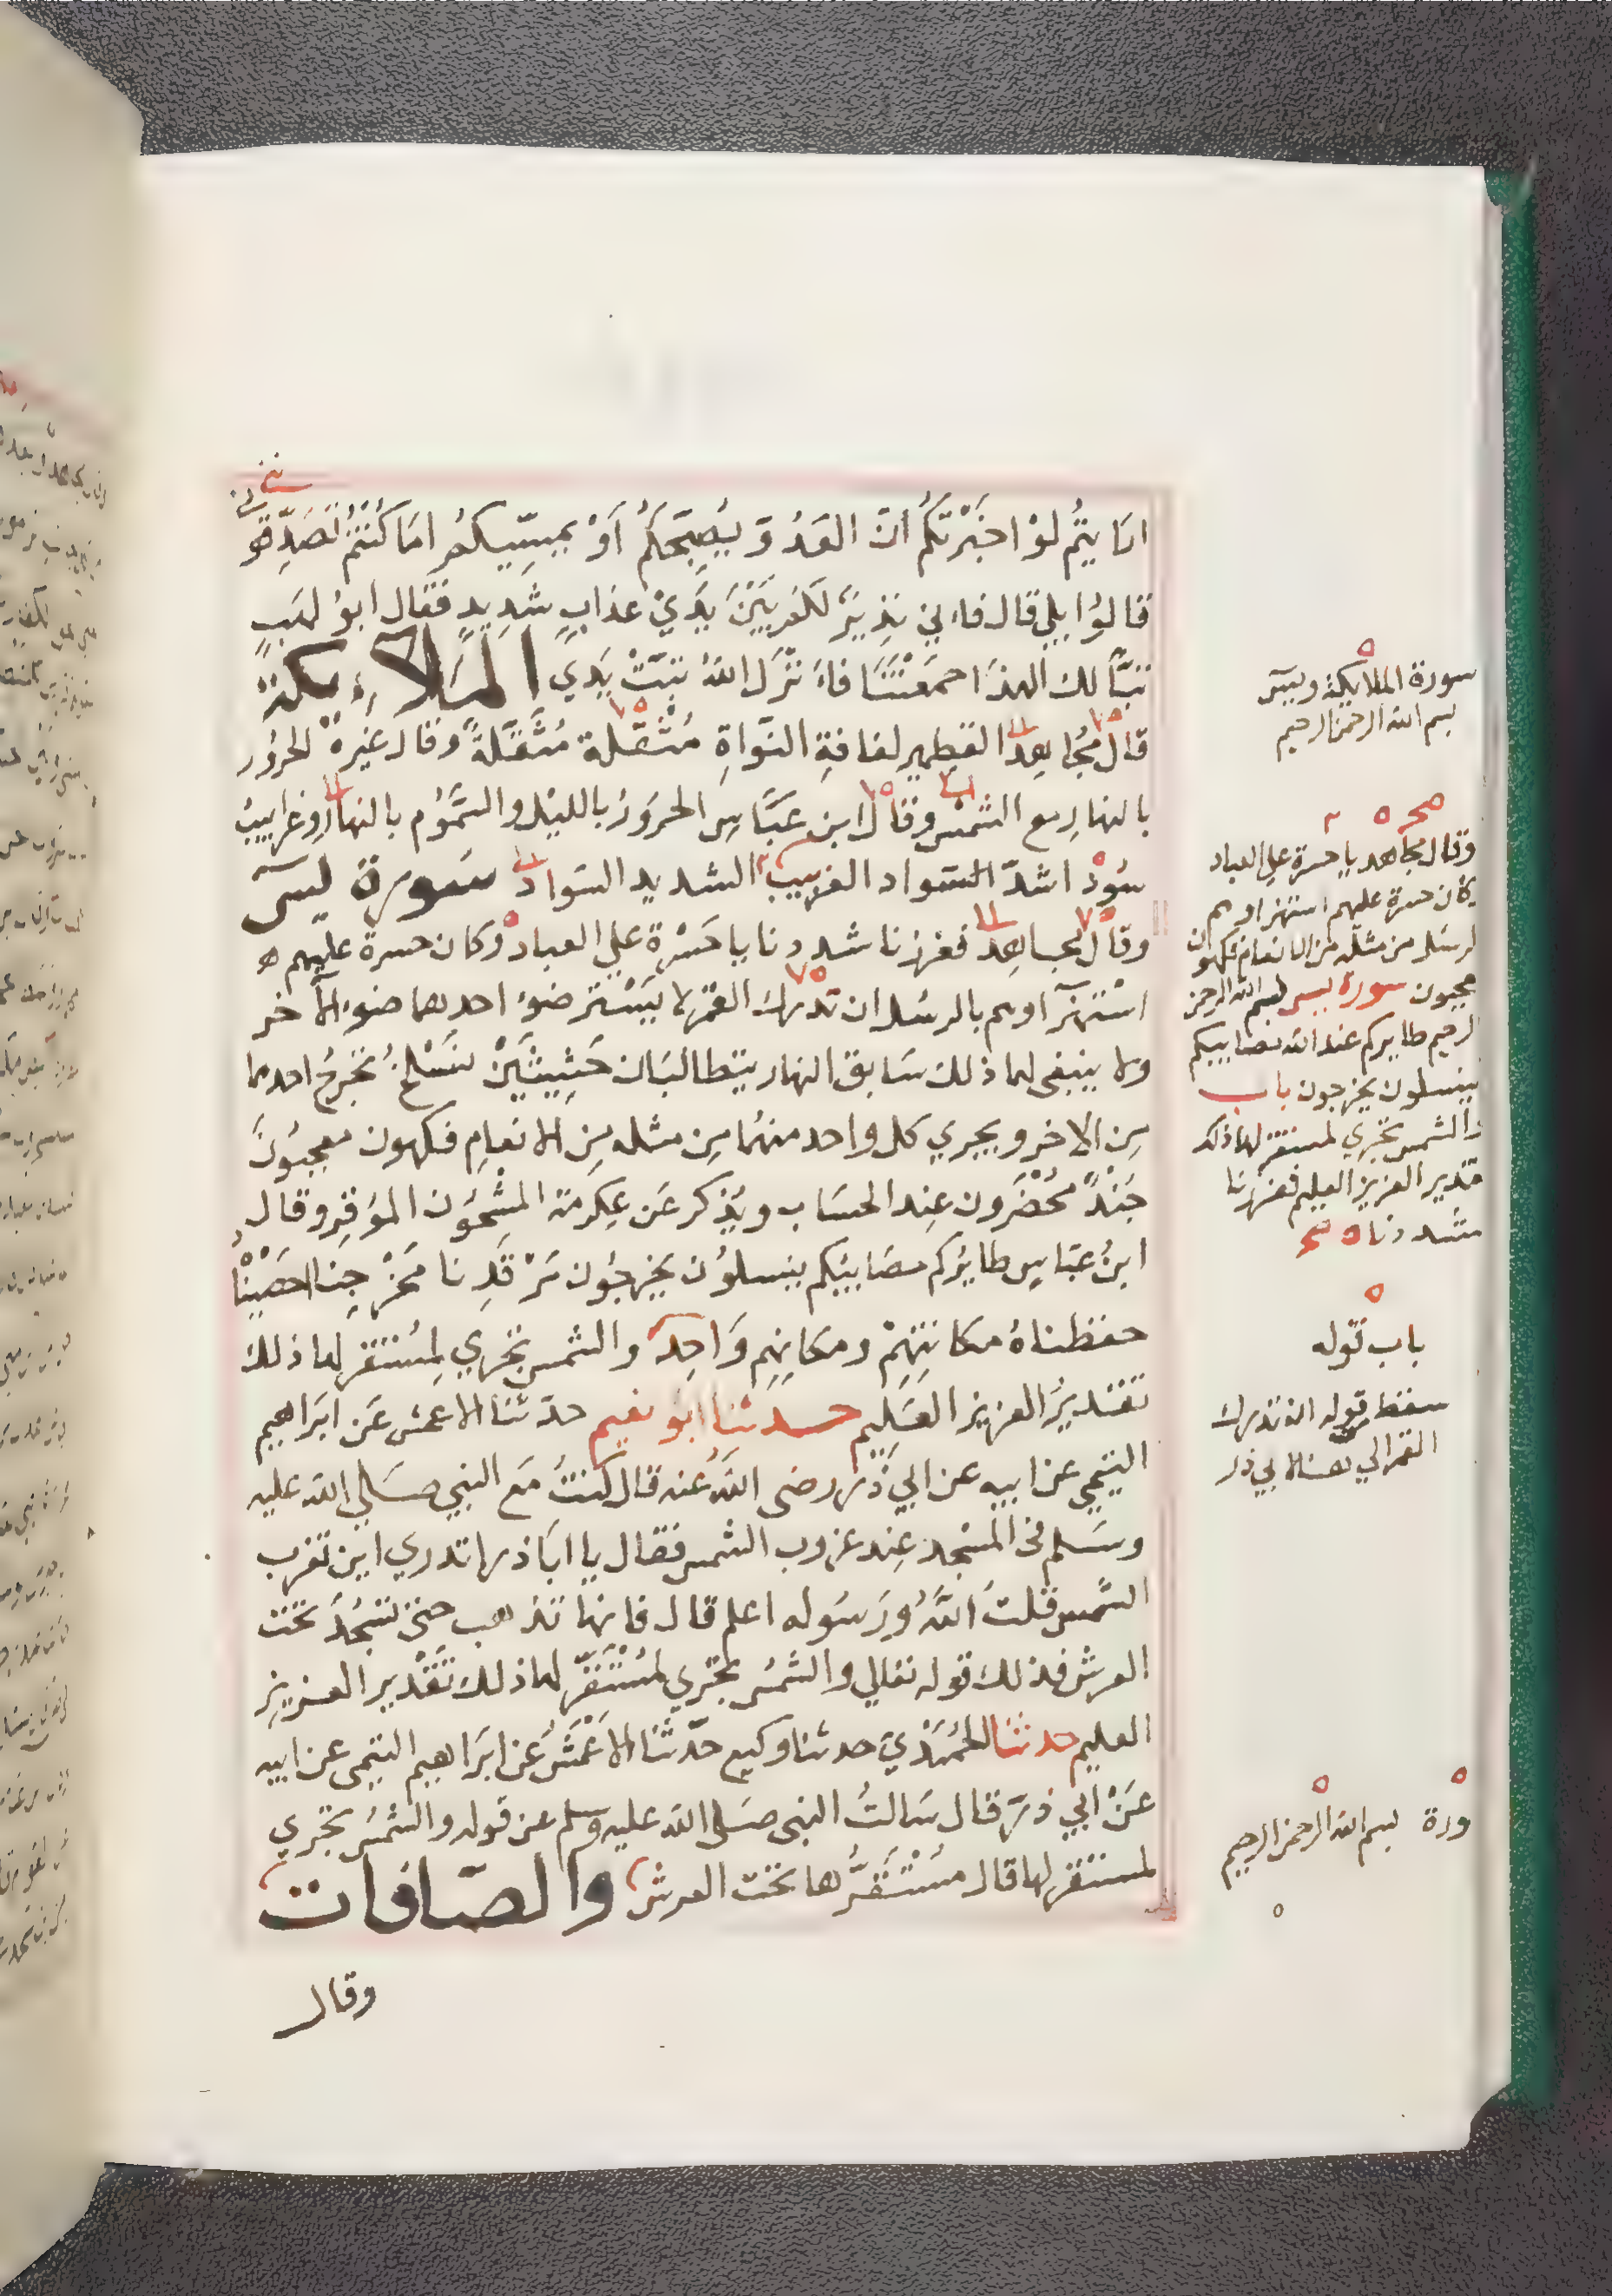 ارَايتُم لوْ اخبَرْتكُم اَنّ العَدُوَّ يُصبِّحكُم اَوْ يمسِّيكم امَا كُنتُم تُصَدِّقو
قالوُا بلي قال فاءني نذِيرٌ لكم بَيْنَ يَدَيْ عذابٍ شدِيدٍ فقال ابوُ لهَبٍ
تبًّا لك الهذَا جمَعْتَنَا فاَنْزَل اللهُ تبّتْ يَدَي الملاءِكة
قال مجُاهِد القطمير لفافةِ النَّواةِ مُثْقَلة مُثَقَّلةٌ وقال غيرهُ الحرُور
بالنهارِ مع الشمسْ وقال ابن عَبَّاسٍ الحرَورُ بالليْل والسَّمُوُم بالنهارِ وغرابيبُ
سُوْدٌ اشدّ السَّواد الغربيب الشديد السَواد سورة يس
وقال مجاهِد فعززنا شددنا يا حَسْرةً علي العباد وكان حسرةً عليهم
استهزآ اوهم بالرسُل ان تدرك القمَر لا يَسْتر ضوءُ احدهما ضوءَ الآخر
ولا ينبغي لهما ذلك سَابق النهار يتطالبَان حَثِيثَيْنِ نسْلخُ نخرجُ احدهما
مِن الاخر ويجري كل واحد منهُما مِن مثله مِن الانعامِ فكهون معجبُونَ
جُنْدٌ محُضَرون عِند الحسَاب ويُذكر عَن عِكرمَة المشْحُون الموُقرِ وقال
ابنُ عبَّاسٍ طايرُكم مصَايبُكم ينسلوُن يخرجُون مَرْقَدِنا مَخْرَجِنا احصَيْنَا
حفظناهُ مكانتِهِمْ ومكانِهِم وَاحِدٌ والشمس تجْري لِمسُتقر لها ذلك
تقْديرُ العزيز العَليم حدثنا ابو نعيم حدّثنا الاعمش عَن ابرَاهيم
التيمي عن ابيه عن ابي ذَر رضى اللّهُ عنه قال كنتُ مَع النبي صَلي الله عليه
وسَلم في المسْجد عِند غروب الشمْس فقال يا ابَا ذر اتدري اين تغرب
الشَّمس قلتُ اللّهُ ورَسوُله اعلم قال فانها تذهب حتى تسْجُدَ تحْت
العرش فذلك قوله تعَالي والشمسُ تجْري لمسُتْقَرٍّ لها ذلك تَقْدير العزيزِ
العليم حدثنا الحُمَيْدِيّ حدثنا وكيع حدّثنا الاعْمَشُ عَن ابرَاهيم التيمى عن ابيه
عَنْ ابي ذرّ قال سَالتُ النبى صَلى الله عليه وسلم عن قوله والشمْسُ تجْري
لمستقر لها قال مسُتْقَرُّها تحْت العرش والصّافات
وقال
سورة الملايكة ويس
بسم الله الرحمن الرحيم
وقال مجاهد يا حسرة علي العباد
كان حسرة عليهم استهزاوهم
بالرسل من مثله من الانعام فكهون
معجبون سورة يس بسم الله الرحمن
الرحيم طايركم عند الله مصايبكم
ينسلون يخرجون باب
والشمس تجري لمستقر لها ذلك
تقدير العزيز العليم فعززنا
شددنا
باب قوله
سقط قوله ان تدرك
القمر الي هنا لابي ذر
سورة بسم الله الرحمن الرحيم